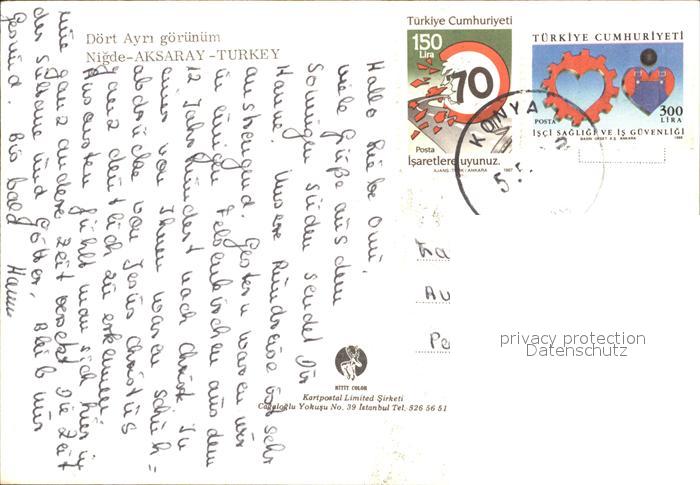 Dört Ayrı görünüm
Niğde-AKSARAY-TURKEY
Türkiye Cumhuriyeti
150
Lira
70
Posta
İşaretlere uyunuz.
AJANS-TÜRK / ANKARA 1987
TÜRKİYE CUMHURİYETİ
POSTA
300
LİRA
İŞÇİ SAĞLIĞI VE İŞ GÜVENLİĞİ
1988
KONYA
Hallo liebe Omi,
viele Grüße aus dem
Sonnigen Süden sendet Dir
Hanne. Unsere Rundreise ist sehr
anstrengend. Gestern waren wir
in einigen Felsenkirchen aus dem
12 Jahrhundert nach Christi. In
einer von Ihnen waren Schuh=
abdrücke von Jesus Christus
ganz deutlich zu erkennen
Ansonsten fühlt man sich hier in
eine ganz andere Zeit versetzt. Die Zeit
der Sultane und Götter. Bleib mir
Gesund. Bis bald
Hanne
HITIT COLOR
Kartpostal Limited Şirketi
Cağaloğlu Yokuşu No. 39 İstanbul Tel. 526 56 51
privacy protection
Datenschutz